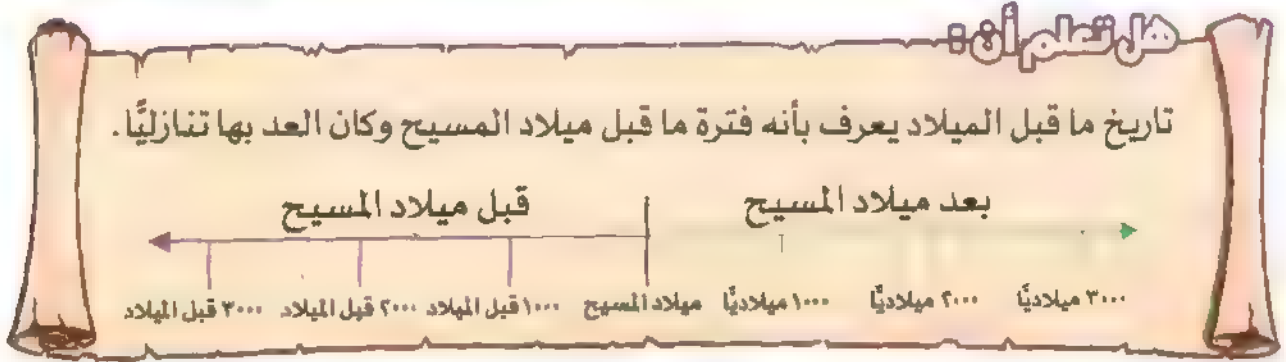 هل تعلم أن :
تاريخ ما قبل الميلاد يعرف بأنه فترة ما قبل ميلاد المسيح وكان العد بها تنازليًّا.
بعد ميلاد المسيح قبل ميلاد المسيح
٣٠٠٠ ميلاديًّا ٢٠٠٠ ميلاديًّا ١٠٠٠ ميلاديًّا ميلاد المسيح ١٠٠٠ قبل الميلاد ٢٠٠٠ قبل الميلاد ٣٠٠٠ قبل الميلاد